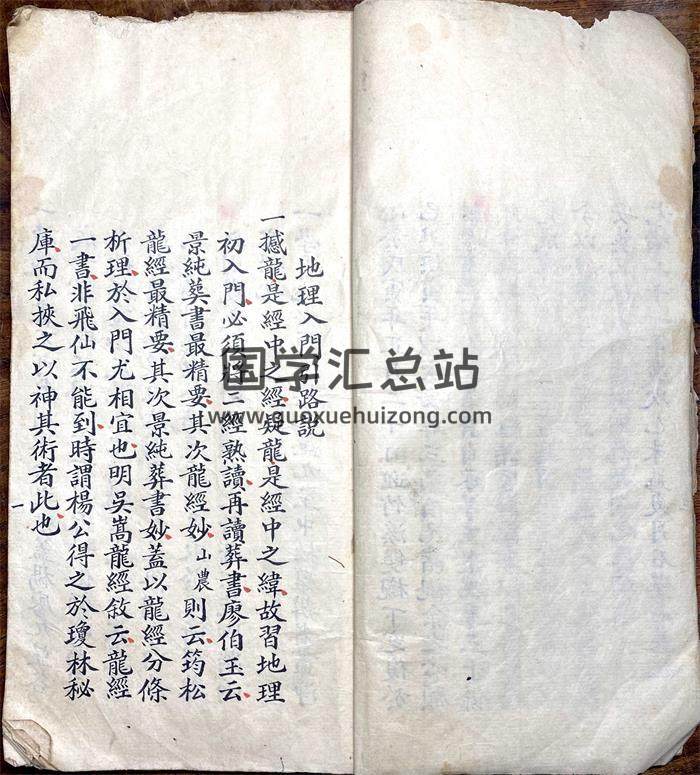 地理入門引路說
一撼龍是經中之經疑龍是經中之緯故習地理
初入門必須將三經熟讀再讀葬書廖伯玉云
景純葬書最精要其次龍經妙山農則云筠松
龍經最精要其次景純葬書妙蓋以龍經分條
析理於入門尤相宜也明吳嵩龍經敘云龍經
一書非飛仙不能到時謂楊公得之於瓊林秘
庫而私挾之以神其術者此也
一
国学汇总站
www.guoxuehuizong.com